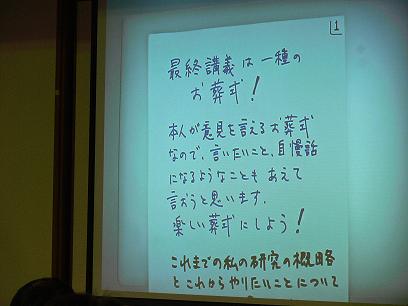 1
最終講義は一種の
お葬式!
本人が意見を言えるお葬式
なので、言いたいこと、自慢話
になるようなことも あえて
言おうと思います.
楽しい葬式にしよう!
これまでの私の研究の概略
とこれからやりたいことについて